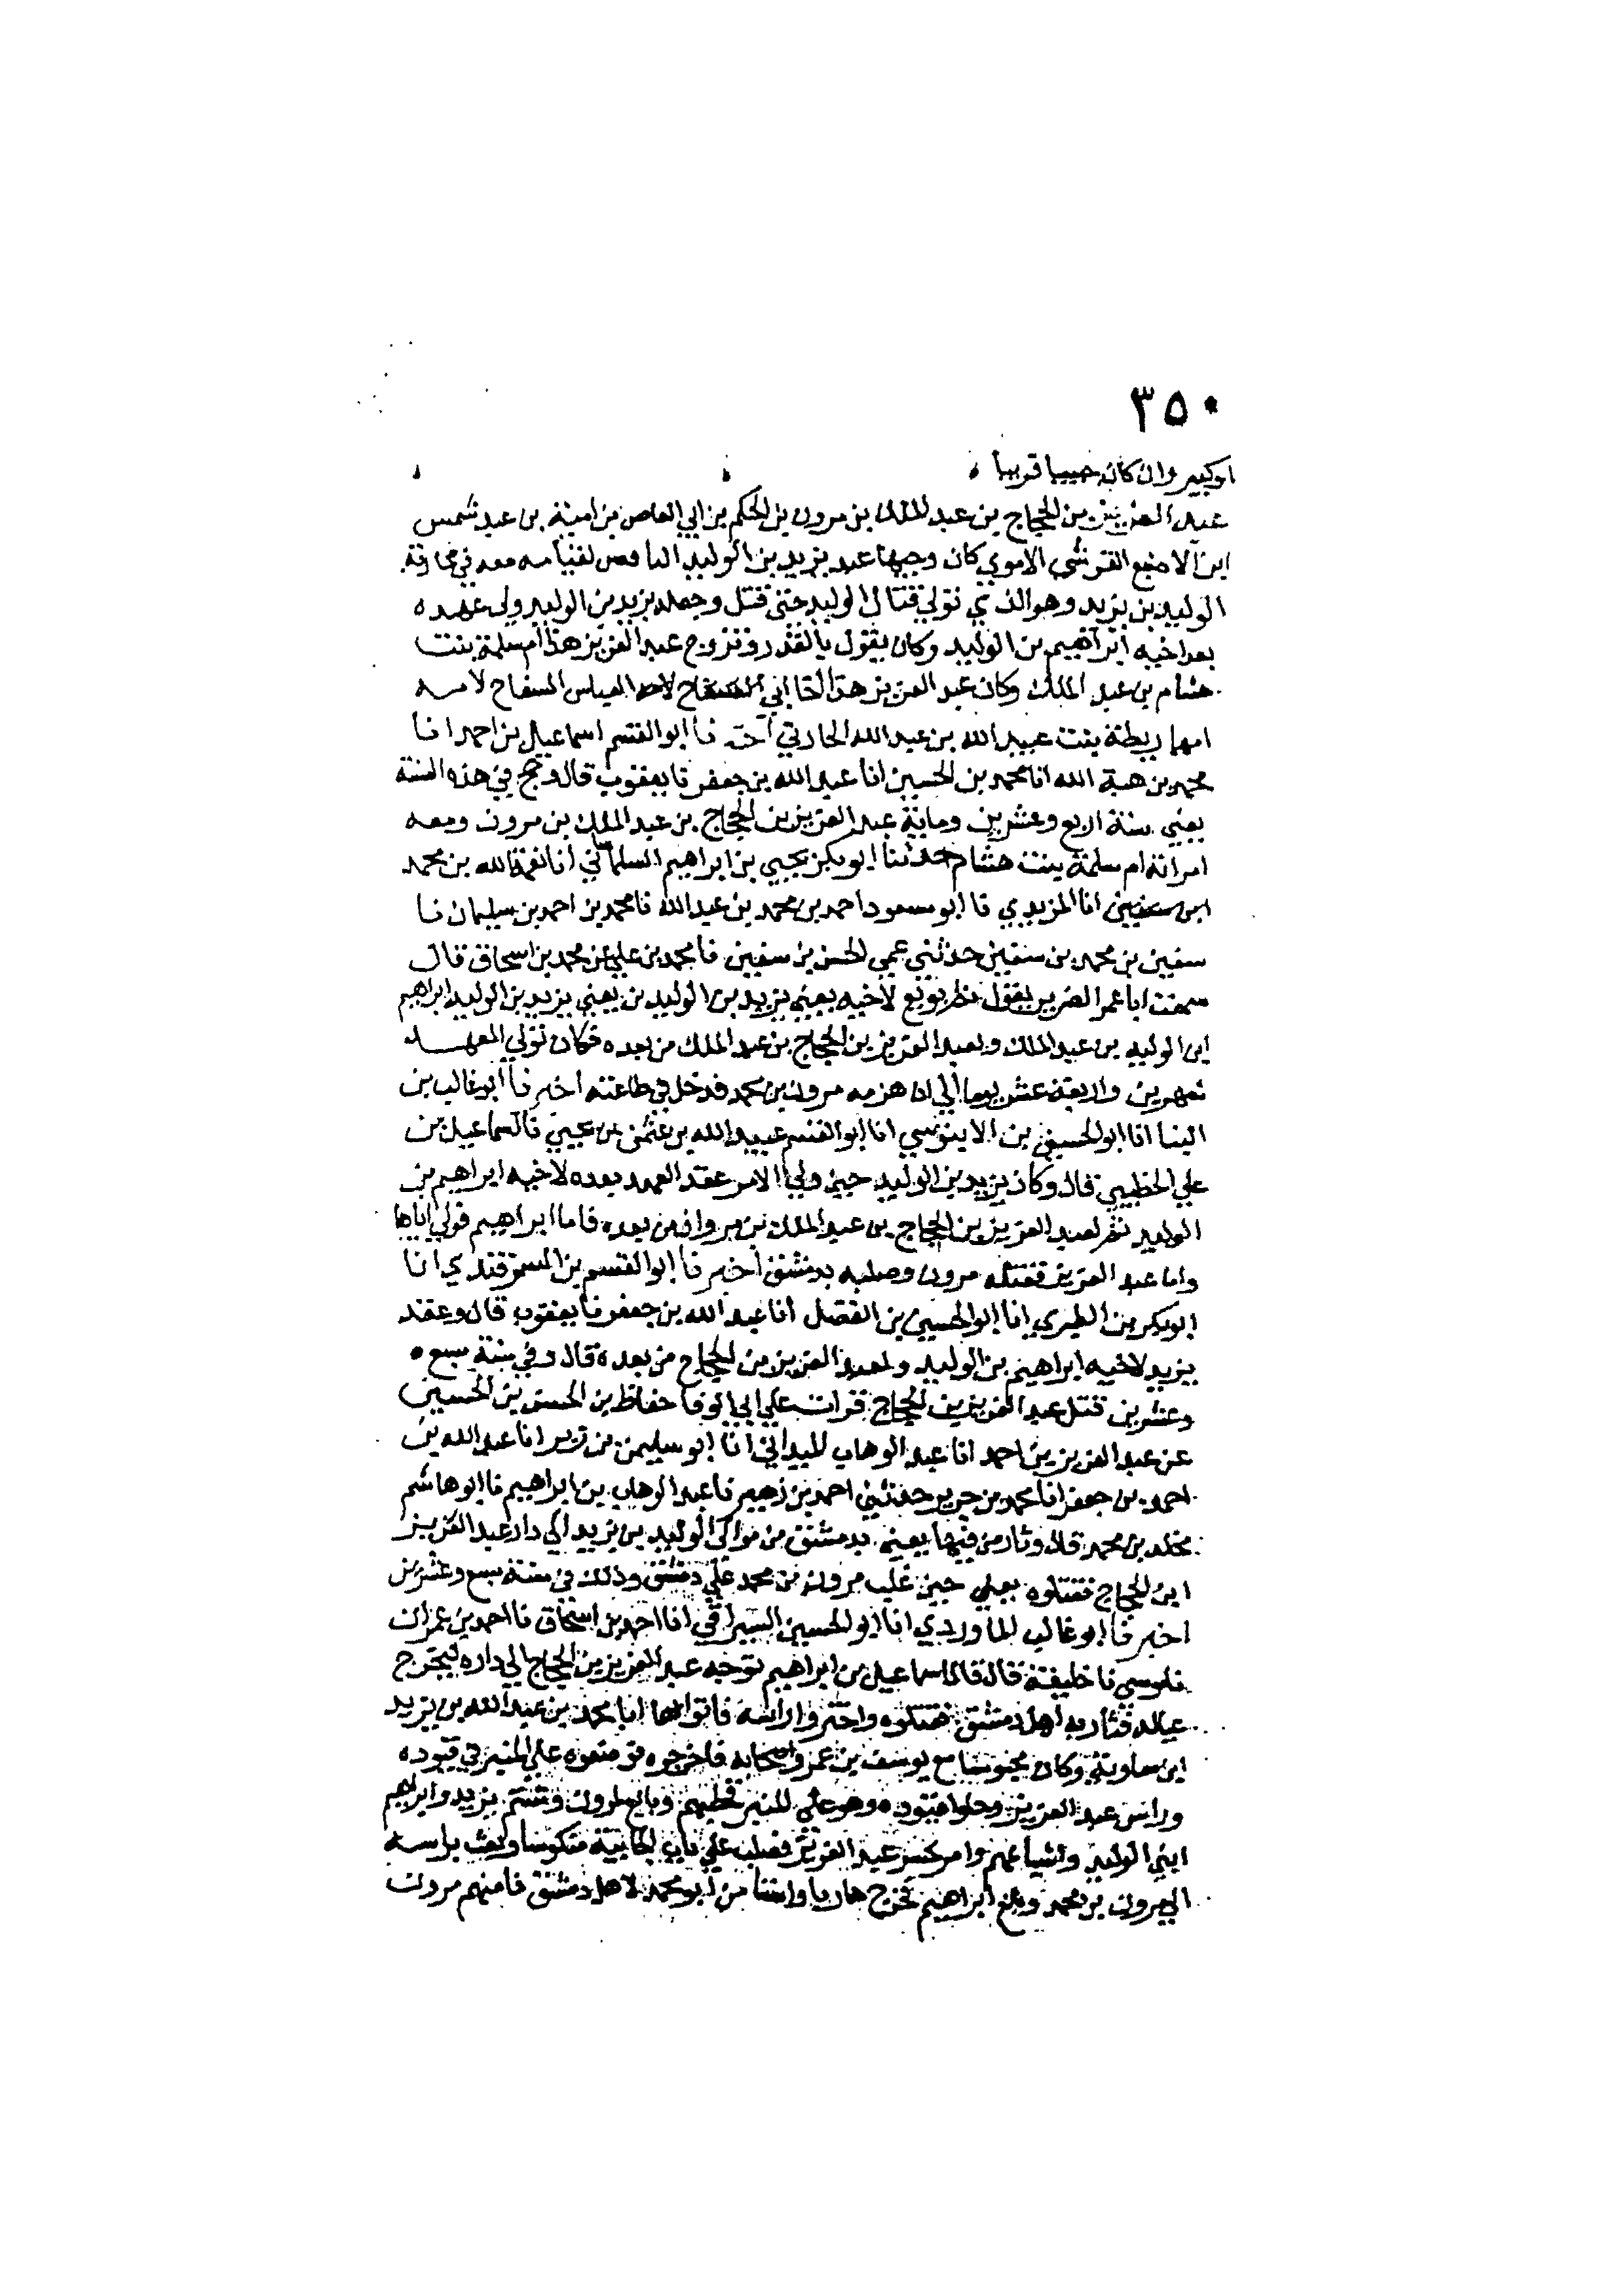 ٣٥٠
او كبير وان كان حبيبا قريبا
عبد العزيز بن الحجاج بن عبد الملك بن مرون بن الحكم بن ابي العاص بن امية بن عبد شمس
ابن الاصبغ القرشي الاموي كان وجيها عند يزيد بن الوليد الناقص لقيامه معه في محاربة
الوليد بن يزيد وهو الذي تولي قتال الوليد حتى قتل وجعله يزيد بن الوليد ولي عهده
بعد اخيه ابراهيم بن الوليد وكان يقول بالقدر وتزوج عبد العزيز هذا ام سلمة بنت
هشام بن عبد الملك وكان عبد العزيز هذا اخا ابي العباس السفاح لامه
امها ريطة بنت عبيد الله بن عبد الله الحارثي نا ابو القسم اسماعيل بن احمد انا
محمد بن هبة الله انا محمد بن الحسين انا عبد الله بن جعفر نا يعقوب قال وحج في هذه السنة
يعني سنة اربع وعشرين وماية عبد العزيز بن الحجاج بن عبد الملك بن مرون ومعه
امراته ام سلمة بنت هشام حدثنا ابو بكر يحيي بن ابراهيم السلماسي انا نعمة الله بن محمد
انا المزيدي نا ابو مسعود احمد بن محمد بن عبد الله نا محمد بن احمد بن سليمان نا
سفين بن محمد بن سفين حدثني عمي الحسن بن سفين نا محمد بن علي عن محمد بن اسحاق قال
سمعت ابا عمر الضرير يقول بويع لاخيه يعني يزيد بن الوليد بن يعني يزيد بن الوليد ابراهيم
ابن الوليد بن عبد الملك وبعبد العزيز بن الحجاج بن عبد الملك من بعده فكان تولي العهد
شهرين واربعة عشر يوما الي ان هزمه مرون بن محمد فدخل في طاعته اخبرنا ابو غالب بن
البنا انا ابو الحسين بن الابنوسي انا ابو القسم عبيد الله بن عثمن بن يحيي نا اسماعيل بن
علي الخطبي قال وكان يزيد بن الوليد حين ولي الامر عقد العهد بعده لاخيه ابراهيم بن
الوليد ثم لعبد العزيز بن الحجاج بن عبد الملك بن مروان من بعده فاما ابراهيم فولي اياها
واما عبد العزيز فقتله مرون وصلبه بدمشق اخبرنا ابو القسم بن السمرقندي انا
ابو بكر بن الطبري انا ابو الحسين بن الفضل انا عبد الله بن جعفر نا يعقوب قال وعقد
يزيد لاخيه ابراهيم بن الوليد ولعبد العزيز بن الحجاج من بعده قال وفي سنة سبع
وعشرين قتل عبد العزيز بن الحجاج قرات علي ابي الوفا حفاظ بن الحسن بن الحسين
عن عبد العزيز بن احمد انا عبد الوهاب الميداني انا ابو سليمن بن زبر انا عبد الله بن
احمد بن جعفر انا محمد بن جرير حدثني احمد بن زهير نا عبد الوهاب بن ابراهيم نا ابو هاشم
مخلد بن محمد قال وثار من فيها يعني بدمشق من موالي الوليد بن يزيد الي دار عبد العزيز
ابن الحجاج فقتلوه يعني حين غلب مرون بن محمد علي دمشق وذلك في سنة سبع وعشرين
اخبرنا ابو غالب الماوردي انا ابو الحسين السيرافي انا احمد بن اسحاق نا احمد بن عمران
نا موسي نا خليفة قال قال اسماعيل بن ابراهيم توجه عبد العزيز بن الحجاج الي داره ليخرج
عياله فثار به اهل دمشق فقتلوه واحتزوا راسه فاتوا ابا محمد بن عبد الله بن يزيد
ابن معاوية وكان محبوسا مع يوسف بن عمر واصحابه فاخرجوه فوضعوه علي المنبر في قيوده
وراس عبد العزيز وحلوا قيوده وهو علي المنبر فخطبهم وبايع لمرون وشتم يزيد وابراهيم
ابني الوليد واشياعهم وامر عبد العزيز فصلب علي باب الجابية منكوسا وبعث براسه
الي مرون بن محمد وبلغ ابراهيم فخرج هاربا واستامن ابو محمد لاهل دمشق فامنهم مرون